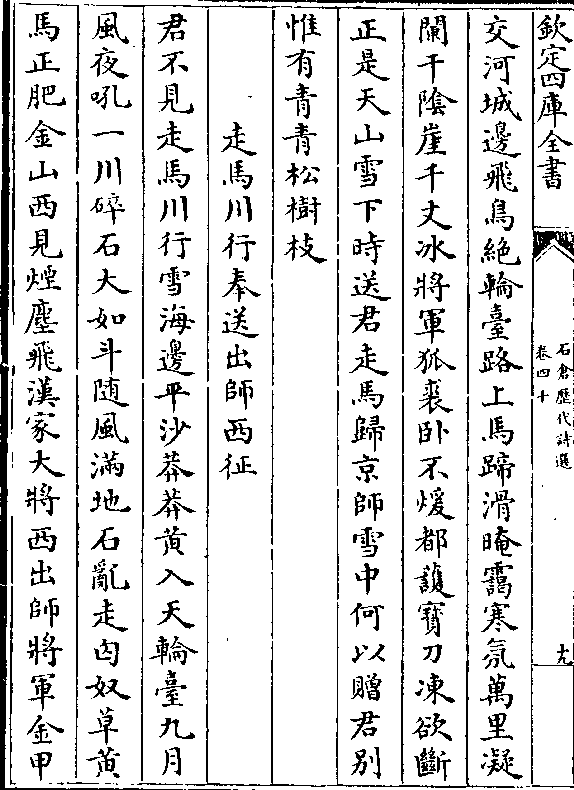 欽定四庫全書
石倉歷代詩選
卷四十
十九
交河城邊飛鳥絶輪臺路上馬蹄滑晻靄寒氛萬里凝
闌干陰崖千丈冰將軍狐裘卧不煖都護寳刀凍欲斷
正是天山雪下時送君走馬歸京師雪中何以贈君别
惟有青青松樹枝
走馬川行奉送出師西征
君不見走馬川行雪海邊平沙莽莽黄入天輪臺九月
風夜吼一川碎石大如斗随風滿地石亂走匈奴草黄
馬正肥金山西見煙塵飛漢家大將西出師將軍金甲